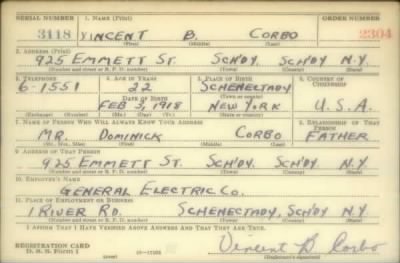 SERIAL NUMBER 1. NAME (Print) ORDER NUMBER
3118 VINCENT B. CORBO 2304
(First) (Middle) (Last)
2. ADDRESS (Print)
925 EMMETT ST. SCH'DY. SCH'DY N.Y.
(Number and street or R. F. D. number) (Town) (County) (State)
3. TELEPHONE 4. AGE IN YEARS 5. PLACE OF BIRTH 6. COUNTRY OF CITIZENSHIP
6-1551 22 SCHENECTADY
DATE OF BIRTH (Town or county)
FEB 3, 1918 NEW YORK U.S.A.
(Exchange) (Number) (Mo.) (Day) (Yr.) (State or country)
7. NAME OF PERSON WHO WILL ALWAYS KNOW YOUR ADDRESS 8. RELATIONSHIP OF THAT PERSON
MR. DOMINICK CORBO FATHER
(Mr., Mrs., Miss) (First) (Middle) (Last)
9. ADDRESS OF THAT PERSON
925 EMMETT ST. SCH'DY. SCH'DY N.Y.
(Number and street or R. F. D. number) (Town) (County) (State)
10. EMPLOYER'S NAME
GENERAL ELECTRIC CO.
11. PLACE OF EMPLOYMENT OR BUSINESS
1 RIVER RD. SCHENECTADY, SCH'DY N.Y.
(Number and street or R. F. D. number) (Town) (County) (State)
I AFFIRM THAT I HAVE VERIFIED ABOVE ANSWERS AND THAT THEY ARE TRUE.
REGISTRATION CARD Vincent B Corbo
D. S. S. Form 1 (Registrant's signature)